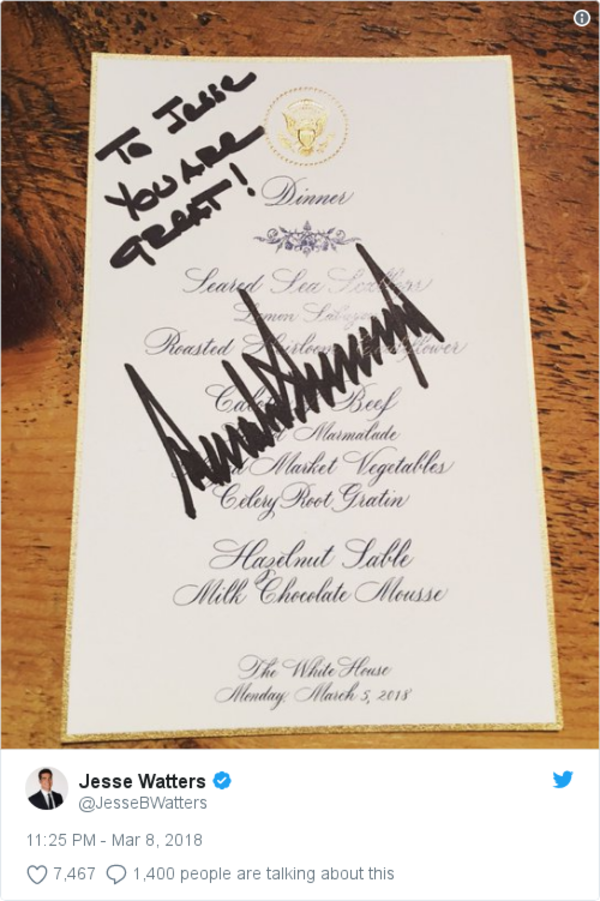 To Jesse
YOU ARE
GREAT!
Dinner
Seared Sea Scallops
Lemon
Roasted Heirloom Cauliflower
Beef
Marmalade
Market Vegetables
Celery Root Gratin
Hazelnut Sable
Milk Chocolate Mousse
The White House
Monday, March 5, 2018
Jesse Watters
@JesseBWatters
11:25 PM - Mar 8, 2018
7,467 1,400 people are talking about this